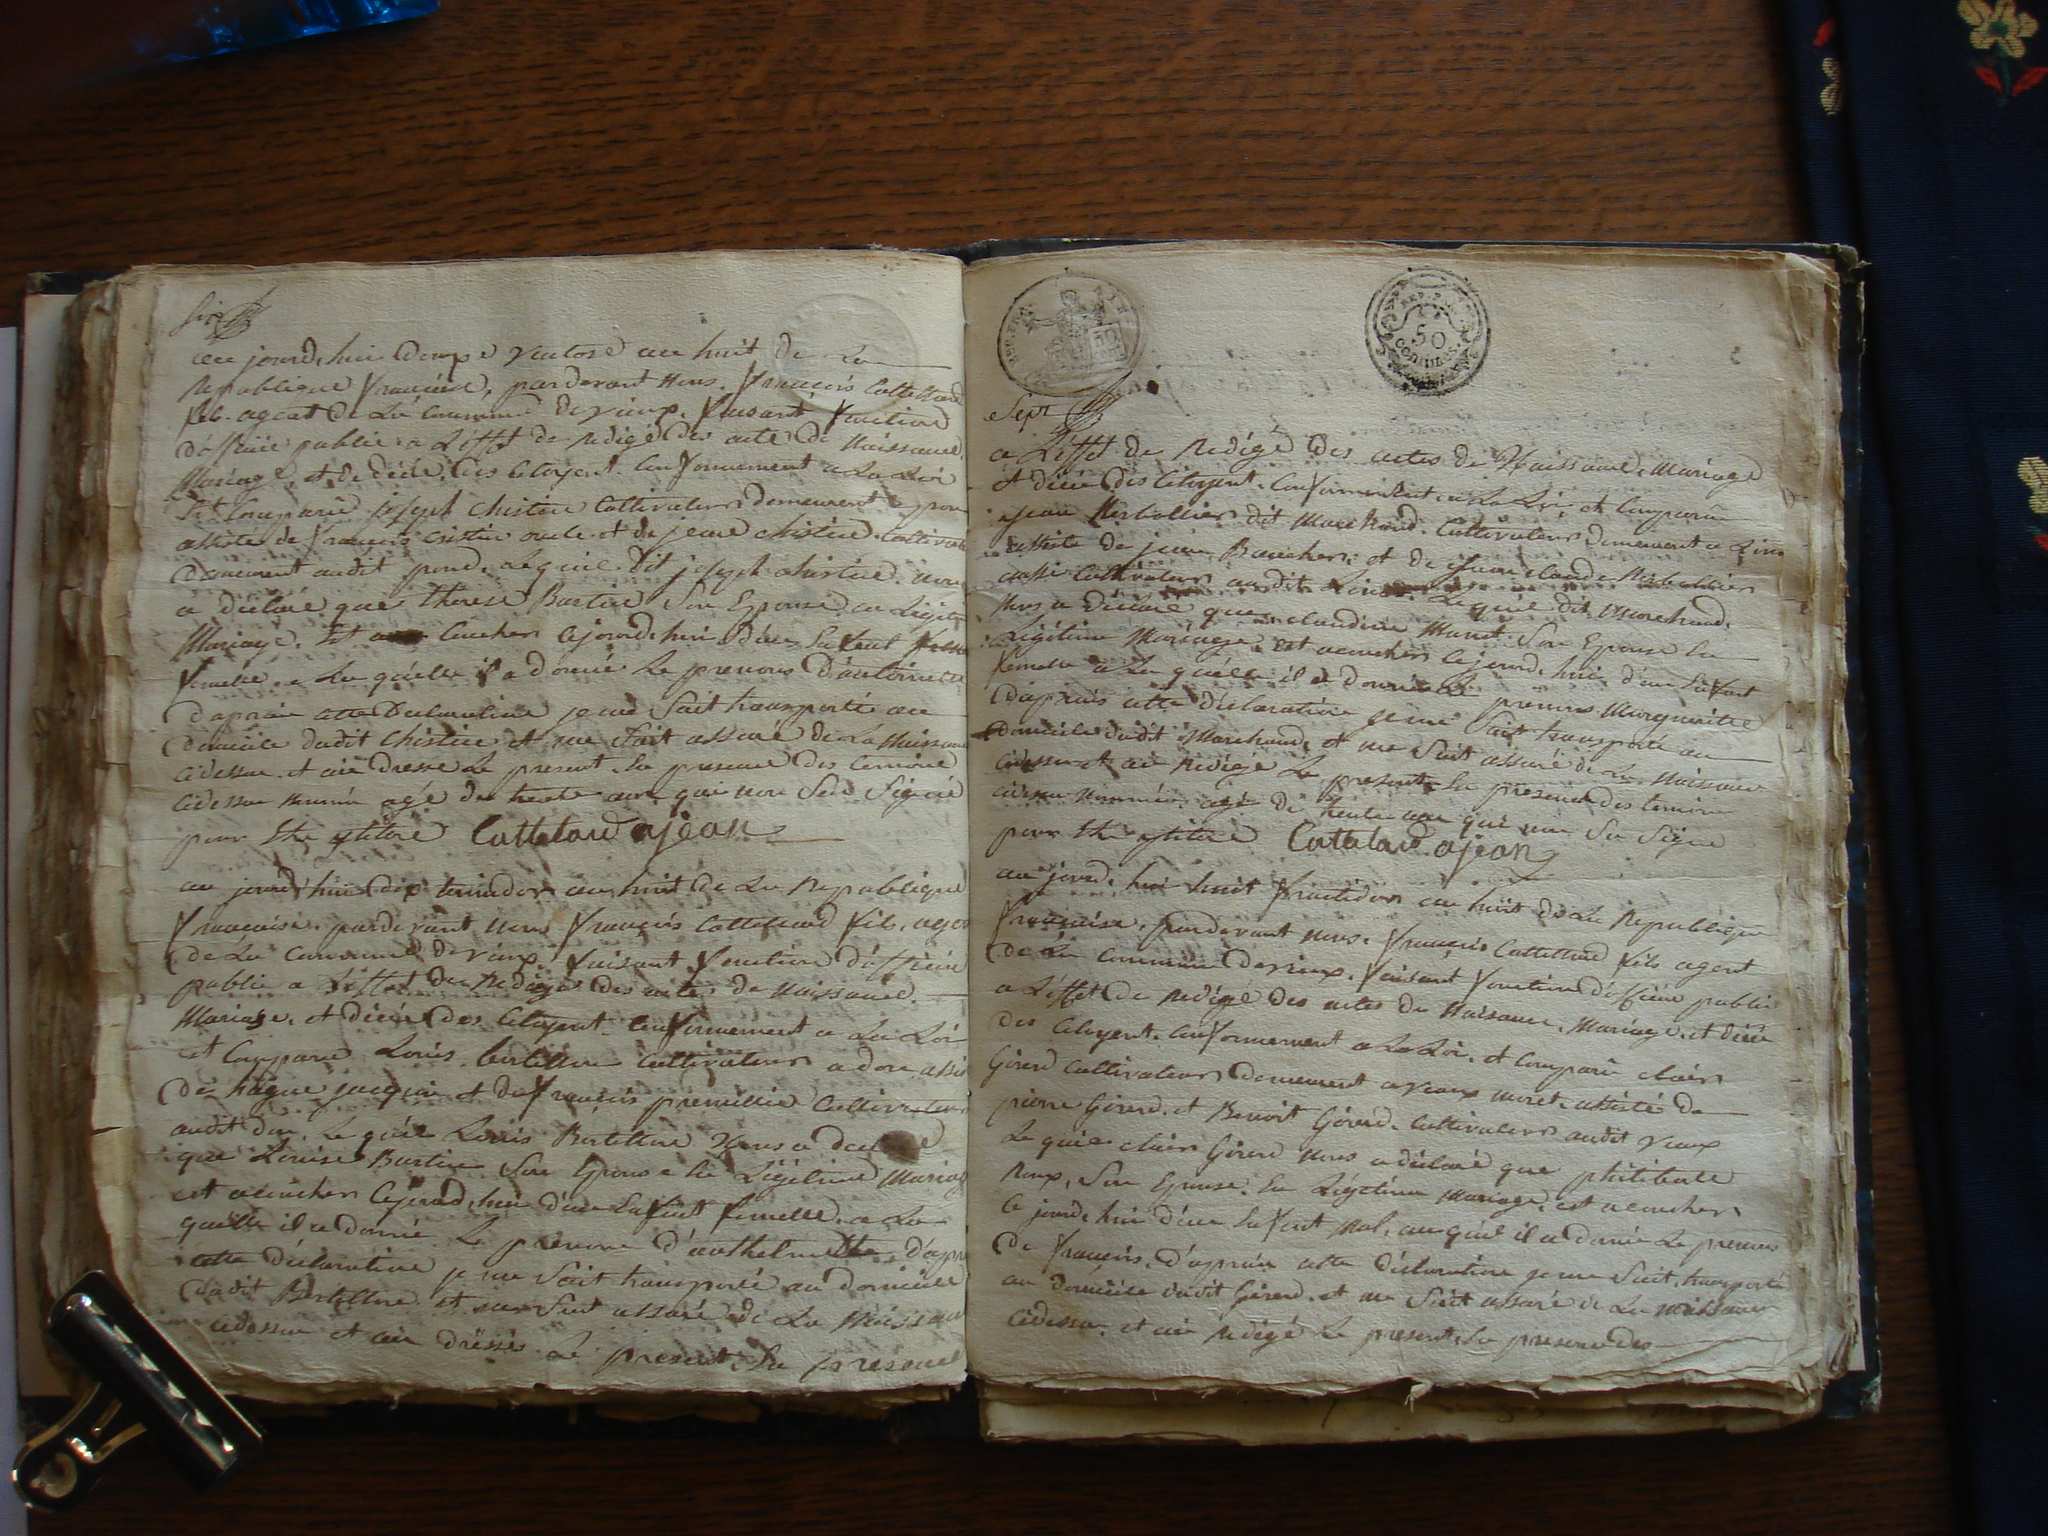 Six
au jourd,hui Douze Ventose an huit de La
Republique française, pardevant nous françois Cattelard
fils agent de La Commune de vieux, faisant fonction
d'officié public a L'effet de Redigé des acte de Naissance
Mariage, et de décée des Citoyent Conformement a La Loi
Est Comparù joseph Christin Cultivateur demeurent a pon
assisté de françois cristin oncle et de jeane christin Cultivate
Demeurent audit pond. Le quiel dit joseph christin nous
a déclaré que therese Bartin Son Epouse en Legiti
Mariage. Est acoucher Cejourd,hui d'eun Enfant
femelle a La quelle il a donné Le prenons D'antoinette
d'aprèe cette Declaration je me Suit transporté au
Domicile dudit Christin et me Suit assuré de La Naissance
Cidessu et aie Dressé Le present En presence des temoins
Cidessu nommé agé de trente ans qui non Seu Signié
pour Cattelard ajean
au jourd'hui dix termidor an huit de La Republique
française, pardevant nous françois Cattelard fils, agen
de La Commune de vieux, faisant fonction d'officié
public a L'effet de Redigé des acte de Naissance.
Mariage, et décée des Citoyent Conformement a La Loi
et Comparu Louis Bertelline Cultivateur a don assis
de hugue jacquin et de françois premillie Cultivateur
audit don, Le quiel Louis Bertelline Nous a declaré
que Louise Bartin Son Epouse En Légitime Mariag
est acoucher Cejourd,hui d'eun Enfant femelle. a La
quelle il a donné Le prenons d'anthelmette. D'apr
cette déclaration je me Suit transporté au domicile
dudit Bertelline et me Suit assuré de La Naissan
cidessu et aie dressé Le present En presence
REP. FRA
50
CENTIMES
Sept
a L'effet de Redigé des actes de Naissance, Mariage
et décée des Citoyent. Conformement a La Loi, et Comparu
jean dit Marchand. Cultivateur demeurent a
assisté de jean Boucher, et de jean claude
aussi Cultivateur audit Le quiel dit Marchand.
Nous a déclaré que claudine Munet Son Epouse En
Légitime Mariage. est acoucher Cejourd,hui d'eun Enfant
femelle a La quelle il a donné Le prenons Marguerite
D'aprèes cette déclaration je me Suit transporté au
Domicile dudit Marchand, et me Suit assuré de La Naissance
cidessu et aie Redigé Le present En presence des temoin
cidessu nommée agé de trente ans qui non Su Signé
pour Cattelard ajean
au jourd,hui huit fructidor an huit de La Republique
française, pardevant nous. françois Cattelard fils agent
de La Commune de vieux. faisant fonction d'officié public
a L'effet de Redigé des actes de Naissance, Mariage, et décée
des Citoyent. Conformement a La Loi. et Comparu clair
Girerd Cultivateur demeurent a vaux moret. assisté de
pierre Girerd, et Benoit Girerd. Cultivateur audit vaux
Le quiel clair Girerd nous a déclaré que philiberte
Roux, Son Epouse. En Légitime Mariage, est acoucher
Cejourd,hui d'eun Enfent Mal, au quel il a donné Le prenons
De françois, D'aprèe cette déclaration je me Suit, transporté
au domicile dudit Girerd. et me Suit assuré de La naissance
Cidessu. et aie Redigé Le present En presence des